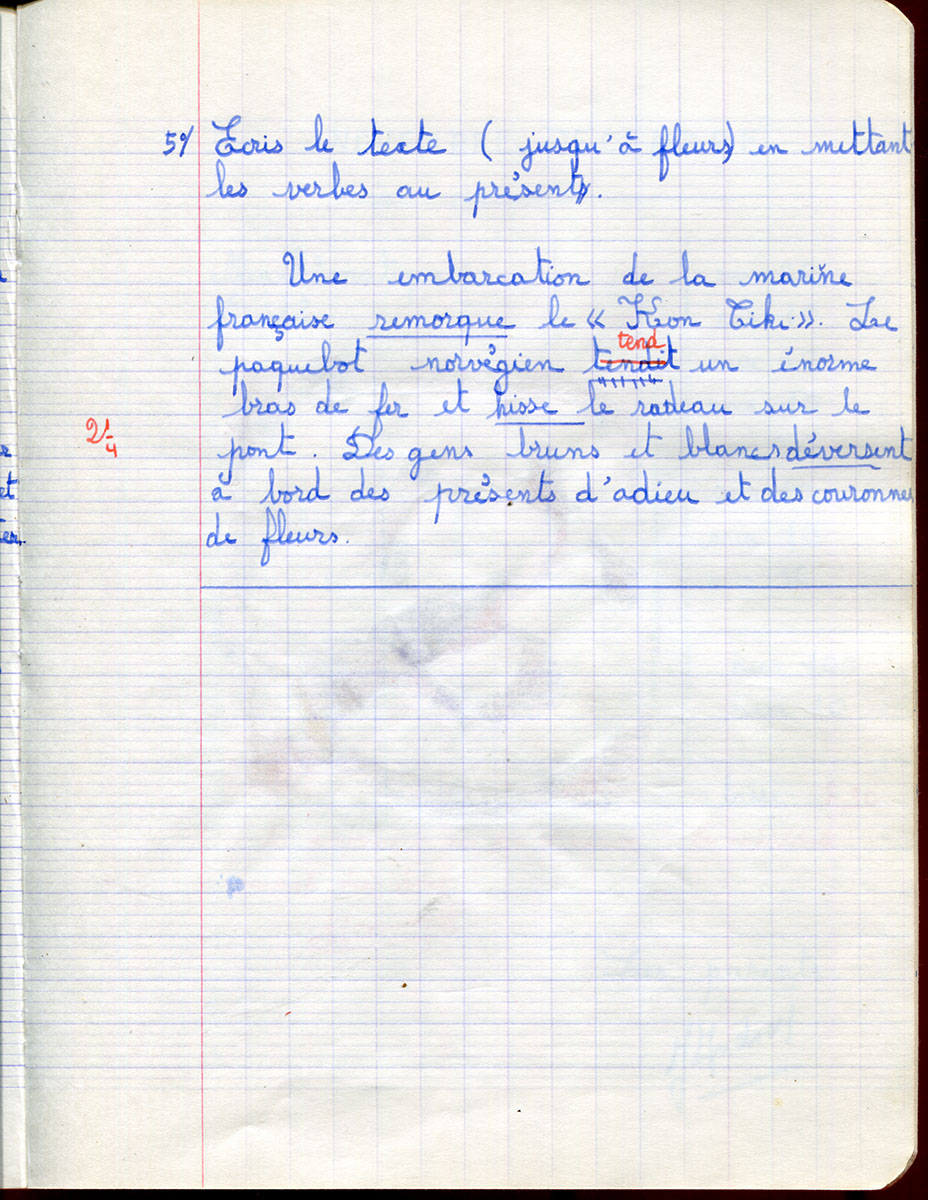 5°/ Ecris le texte ( jusqu'à fleurs) en mettant
les verbes au présent.
Une embarcation de la marine
française remorque le « Kon Tiki ». Le
tend
paquebot norvégien tendit un énorme
bras de fer et hisse le radeau sur le
2 1/4
pont. Des gens bruns et blancs déversent
à bord des présents d'adieu et des couronnes
de fleurs.
et